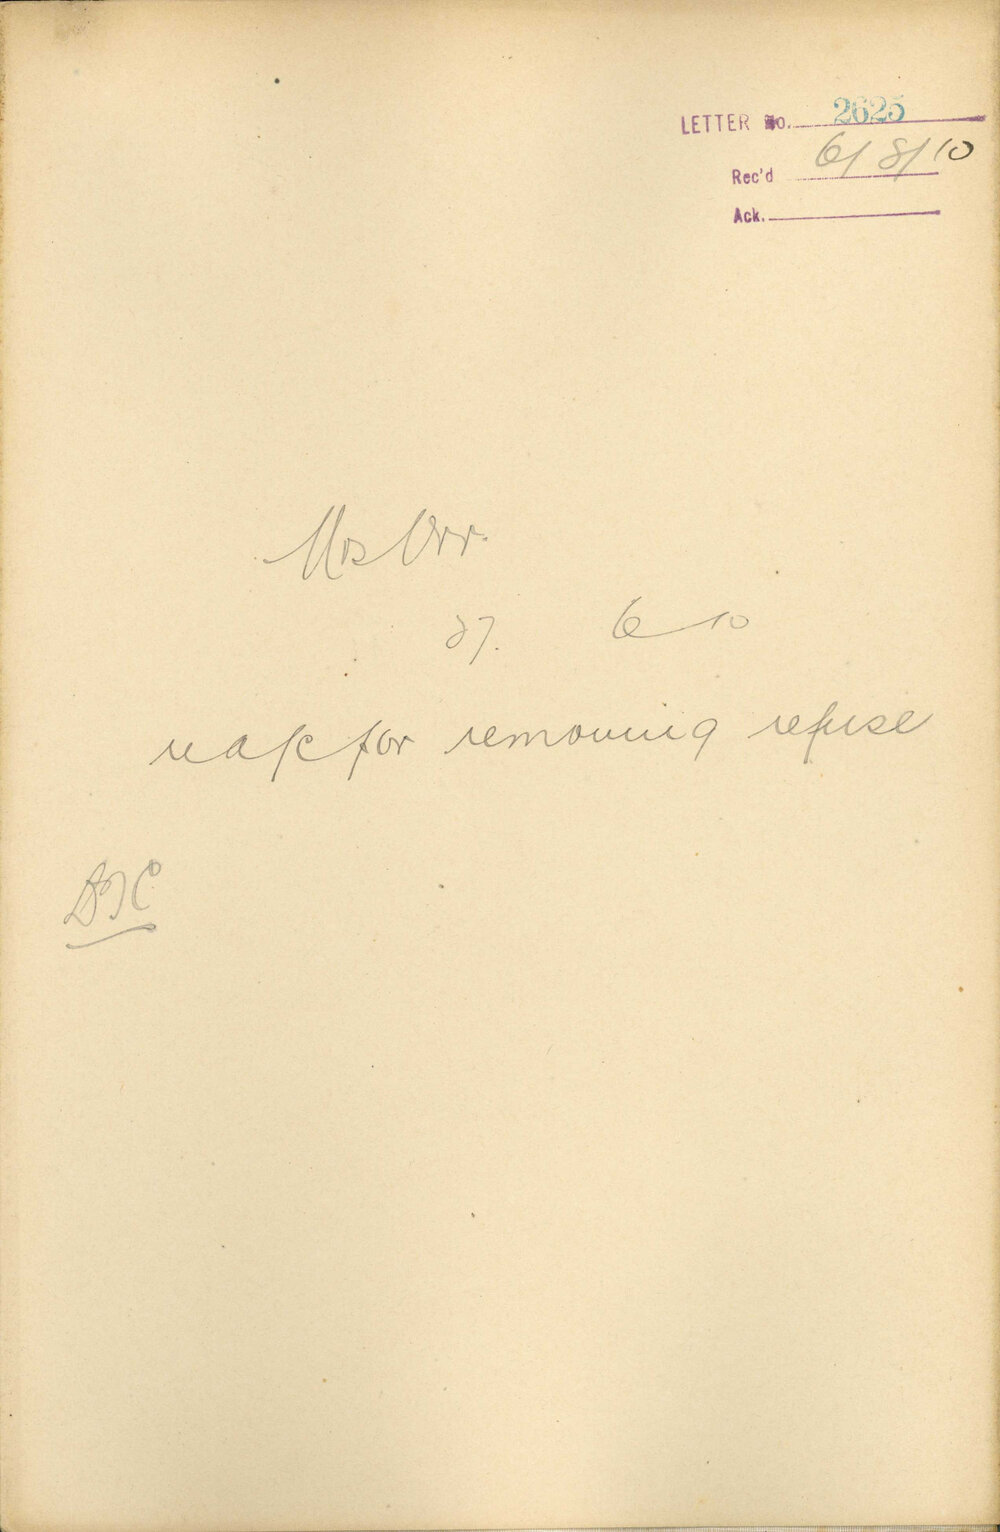 LETTER No. 2625
Rec'd 6/8/10
Ack.
Mrs Orr.
6 10
re a/c for removing refuse